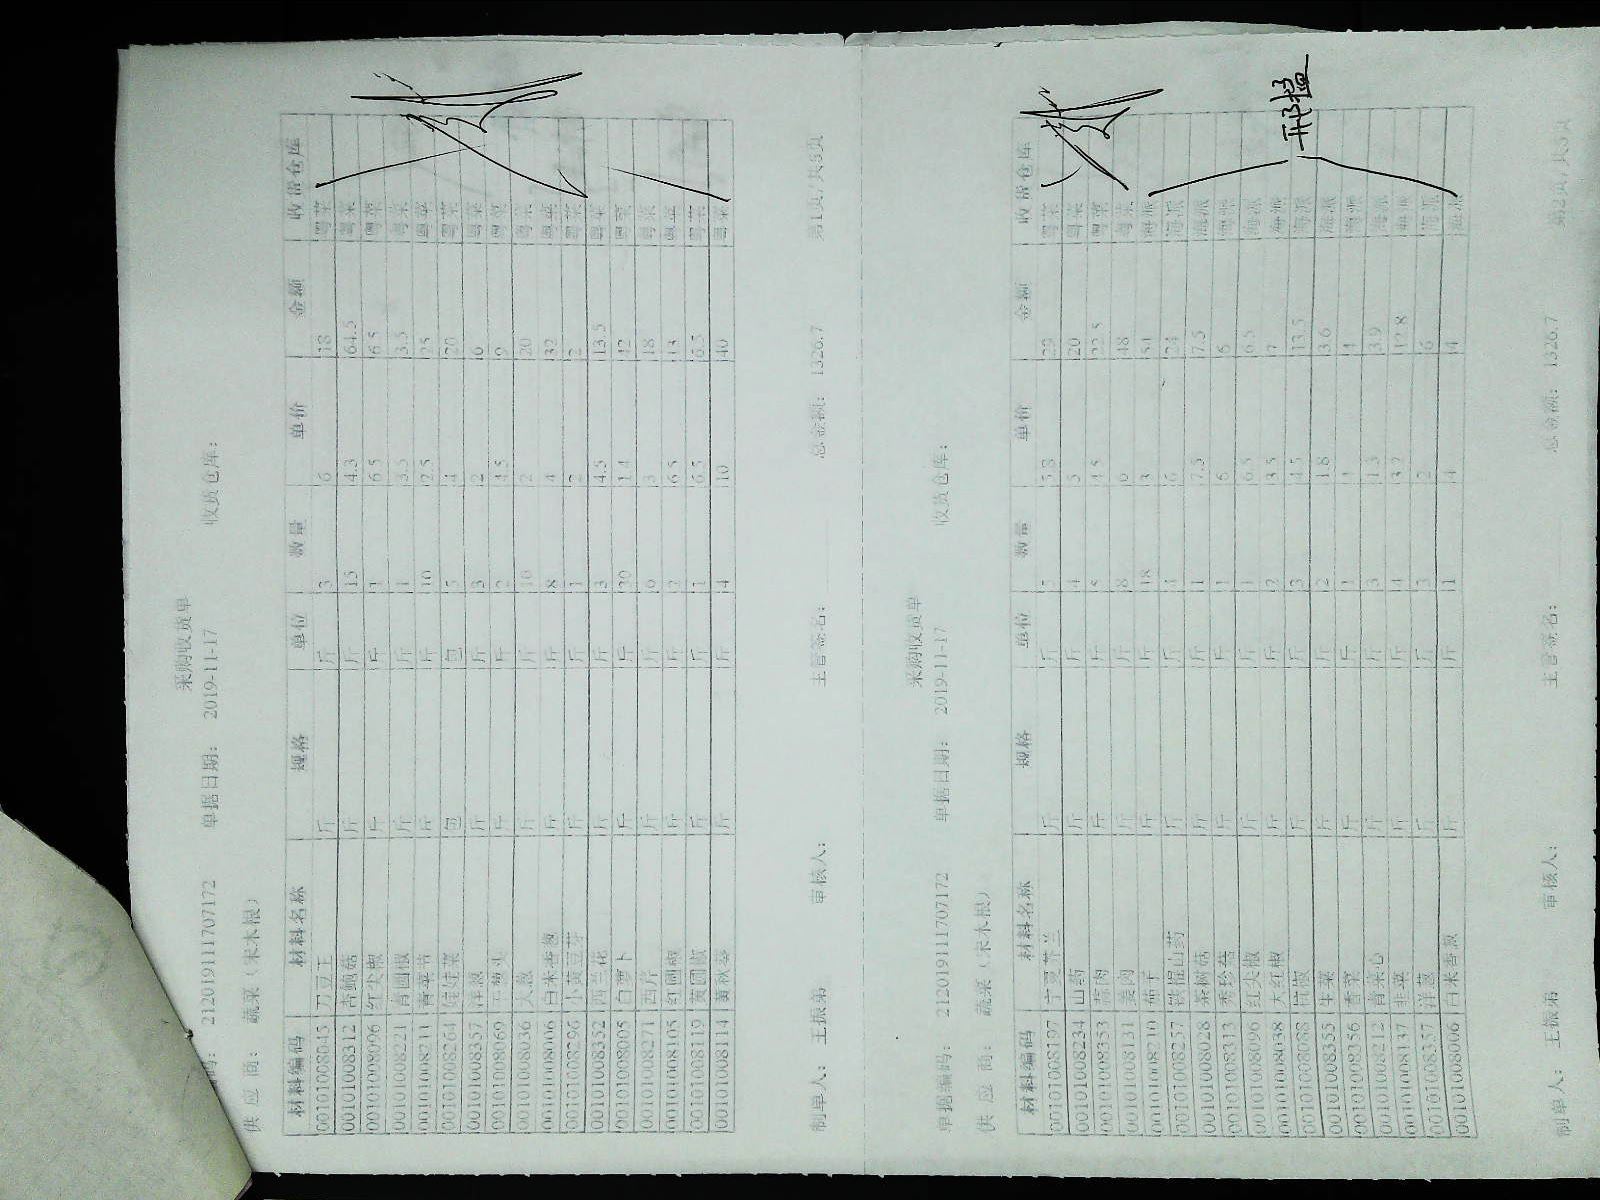 采购收货单
编码： 212019111707172 单据日期： 2019-11-17 收货仓库：
供 应 商： 蔬菜（宋木根）
材料编码 材料名称 规格 单位 数量 单价 金额 收货仓库
00101008045 刀豆王 斤 斤 3 6 18 粤菜
00101008312 杏鲍菇 斤 斤 15 4.3 64.5 粤菜
00101008096 红尖椒 斤 斤 1 6.5 6.5 粤菜
00101008221 青圆椒 斤 斤 1 3.5 3.5 粤菜
00101008211 斤 斤 10 2.5 25 粤菜
00101008264 娃娃菜 包 包 5 4 20 粤菜
00101008357 洋葱 斤 斤 3 2 6 粤菜
00101008069 干葱头 斤 斤 2 4.5 9 粤菜
00101008036 大葱 斤 斤 10 2 20 粤菜
00101008006 白米香葱 斤 斤 8 4 32 粤菜
00101008296 小黄豆芽 斤 斤 1 2 2 粤菜
00101008332 西兰花 斤 斤 3 4.5 13.5 粤菜
00101008005 白萝卜 斤 斤 30 1.4 42 粤菜
00101008271 西芹 斤 斤 6 3 18 粤菜
00101008105 红圆椒 斤 斤 2 6.5 13 粤菜
00101008119 黄圆椒 斤 斤 1 6.5 6.5 粤菜
00101008114 黄秋葵 斤 斤 4 10 40 粤菜
制单人： 王振弟 审核人： 主管签名： 总金额： 1326.7 第1页/共3页
采购收货单
单据编码： 212019111707172 单据日期： 2019-11-17 收货仓库：
供 应 商： 蔬菜（宋木根）
材料编码 材料名称 规格 单位 数量 单价 金额 收货仓库
00101008197 宁夏芥兰 斤 斤 5 5.8 29 粤菜
00101008234 山药 斤 斤 4 5 20 粤菜
00101008353 蒜肉 斤 斤 5 4.5 22.5 粤菜
00101008131 姜肉 斤 斤 8 6 48 粤菜
00101008210 茄子 斤 斤 18 3 54 海派
00101008257 铁棍山药 斤 斤 4 6 24 海派
00101008028 茶树菇 斤 斤 1 7.5 7.5 海派
00101008313 秀珍菇 斤 斤 1 6 6 海派
00101008096 红尖椒 斤 斤 1 6.5 6.5 海派
00101008038 大红椒 斤 斤 2 3.5 7 海派
00101008088 杭椒 斤 斤 3 4.5 13.5 海派
00101008355 生菜 斤 斤 2 1.8 3.6 海派
00101008256 香菜 斤 斤 1 4 4 海派
00101008212 青菜心 斤 斤 3 1.3 3.9 海派
00101008137 韭菜 斤 斤 4 3.2 12.8 海派
00101008357 洋葱 斤 斤 3 2 6 海派
00101008006 白米香葱 斤 斤 1 4 4 海派
制单人： 王振弟 审核人： 主管签名： 总金额： 1326.7 第2页/共3页